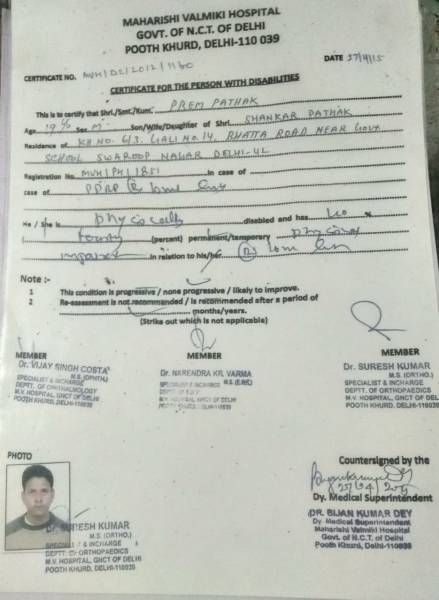 MAHARISHI VALMIKI HOSPITAL
GOVT. OF N.C.T. OF DELHI
POOTH KHURD, DELHI-110 039
DATE 27/4/15
CERTIFICATE NO. MVH/DC/2012/1160
CERTIFICATE FOR THE PERSON WITH DISABILITIES
This is to certify that Shri./Smt./Kum. PREM PATHAK
Age 19 Sex M Son/Wife/Daughter of Shri SHANKAR PATHAK
Residence of KH NO. 6/3, GALI NO. 14, BHATTA ROAD NEAR GOVT.
SCHOOL SWAROOP NAGAR DELHI-42
Registration No. MVH/PH/1851 in case of
case of PPRP
He / She is physically disabled and has 40 %
(percent) permanent/temporary physical
in relation to his/her
Note :-
1 This condition is progressive / none progressive / likely to improve.
2 Re-assessment is not recommended / is recommended after a period of
months/years.
(Strike out which is not applicable)
MEMBER MEMBER MEMBER
Dr. VIJAY SINGH COSTA
M.S. (OPHTH.)
SPECIALIST & INCHARGE
DEPTT. OF OPHTHALMOLOGY
M.V. HOSPITAL, GNCT OF DELHI
POOTH KHURD, DELHI-110039
Dr. NARENDRA KR. VARMA
M.S. (E.N.T.)
SPECIALIST & INCHARGE
M.V. HOSPITAL, GNCT OF DELHI
POOTH KHURD, DELHI-110039
Dr. SURESH KUMAR
M.S. (ORTHO.)
SPECIALIST & INCHARGE
DEPTT. OF ORTHOPAEDICS
M.V. HOSPITAL, GNCT OF DELHI
POOTH KHURD, DELHI-110039
PHOTO
Dr. SURESH KUMAR
M.S. (ORTHO.)
SPECIALIST & INCHARGE
DEPTT. OF ORTHOPAEDICS
M.V. HOSPITAL, GNCT OF DELHI
POOTH KHURD, DELHI-110039
Countersigned by the
Dy. Medical Superintendent
DR. BIJAN KUMAR DEY
Dy. Medical Superintendent
Maharishi Valmiki Hospital
Govt. of N.C.T. of Delhi
Pooth Khurd, Delhi-110039